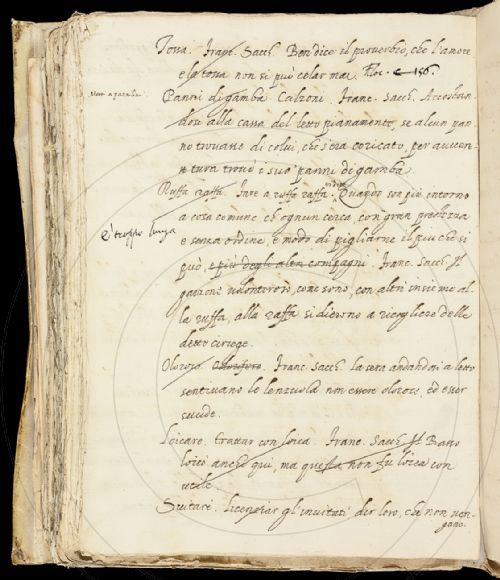 Tossa. Franc. Sacch. Ben dice il proverbio, che l'amore
e la tossa non si può celar mai. Flor. c 156.
Panni di gamba Calzoni. Franc. Sacch. Accostan
dosi alla cassa del letto pianamente, se alcun pan
no trovasse di colui, che s'era coricato, per avven
tura trovò i suoi panni di gamba.
Ruffa raffa. Fare a ruffa raffa. Quando son più intorno
a cosa comune ch'ognun cerca, con gran prestezza
È troppo lunga
e senza ordine, e modo di pigliarne il più che si
può, e più degli altri compagni. Franc. Sacch. Il
garzone volonteroso, come sono, con altri insieme al
la ruffa, alla raffa si dierono a ricogliere delle
dette ciriege.
Oloroso. Franc. Sacch. la sera andandosi a letto
sentivano le lenzuola non essere olorose, ed esser
sucide.
Loicare. trattar con loica. Franc. Sacch. Il Basso
loicò anche qui, ma questa non fu loica con
utile.
Svitare. licenziar gl'invitati dir loro, che non ven-
gano.